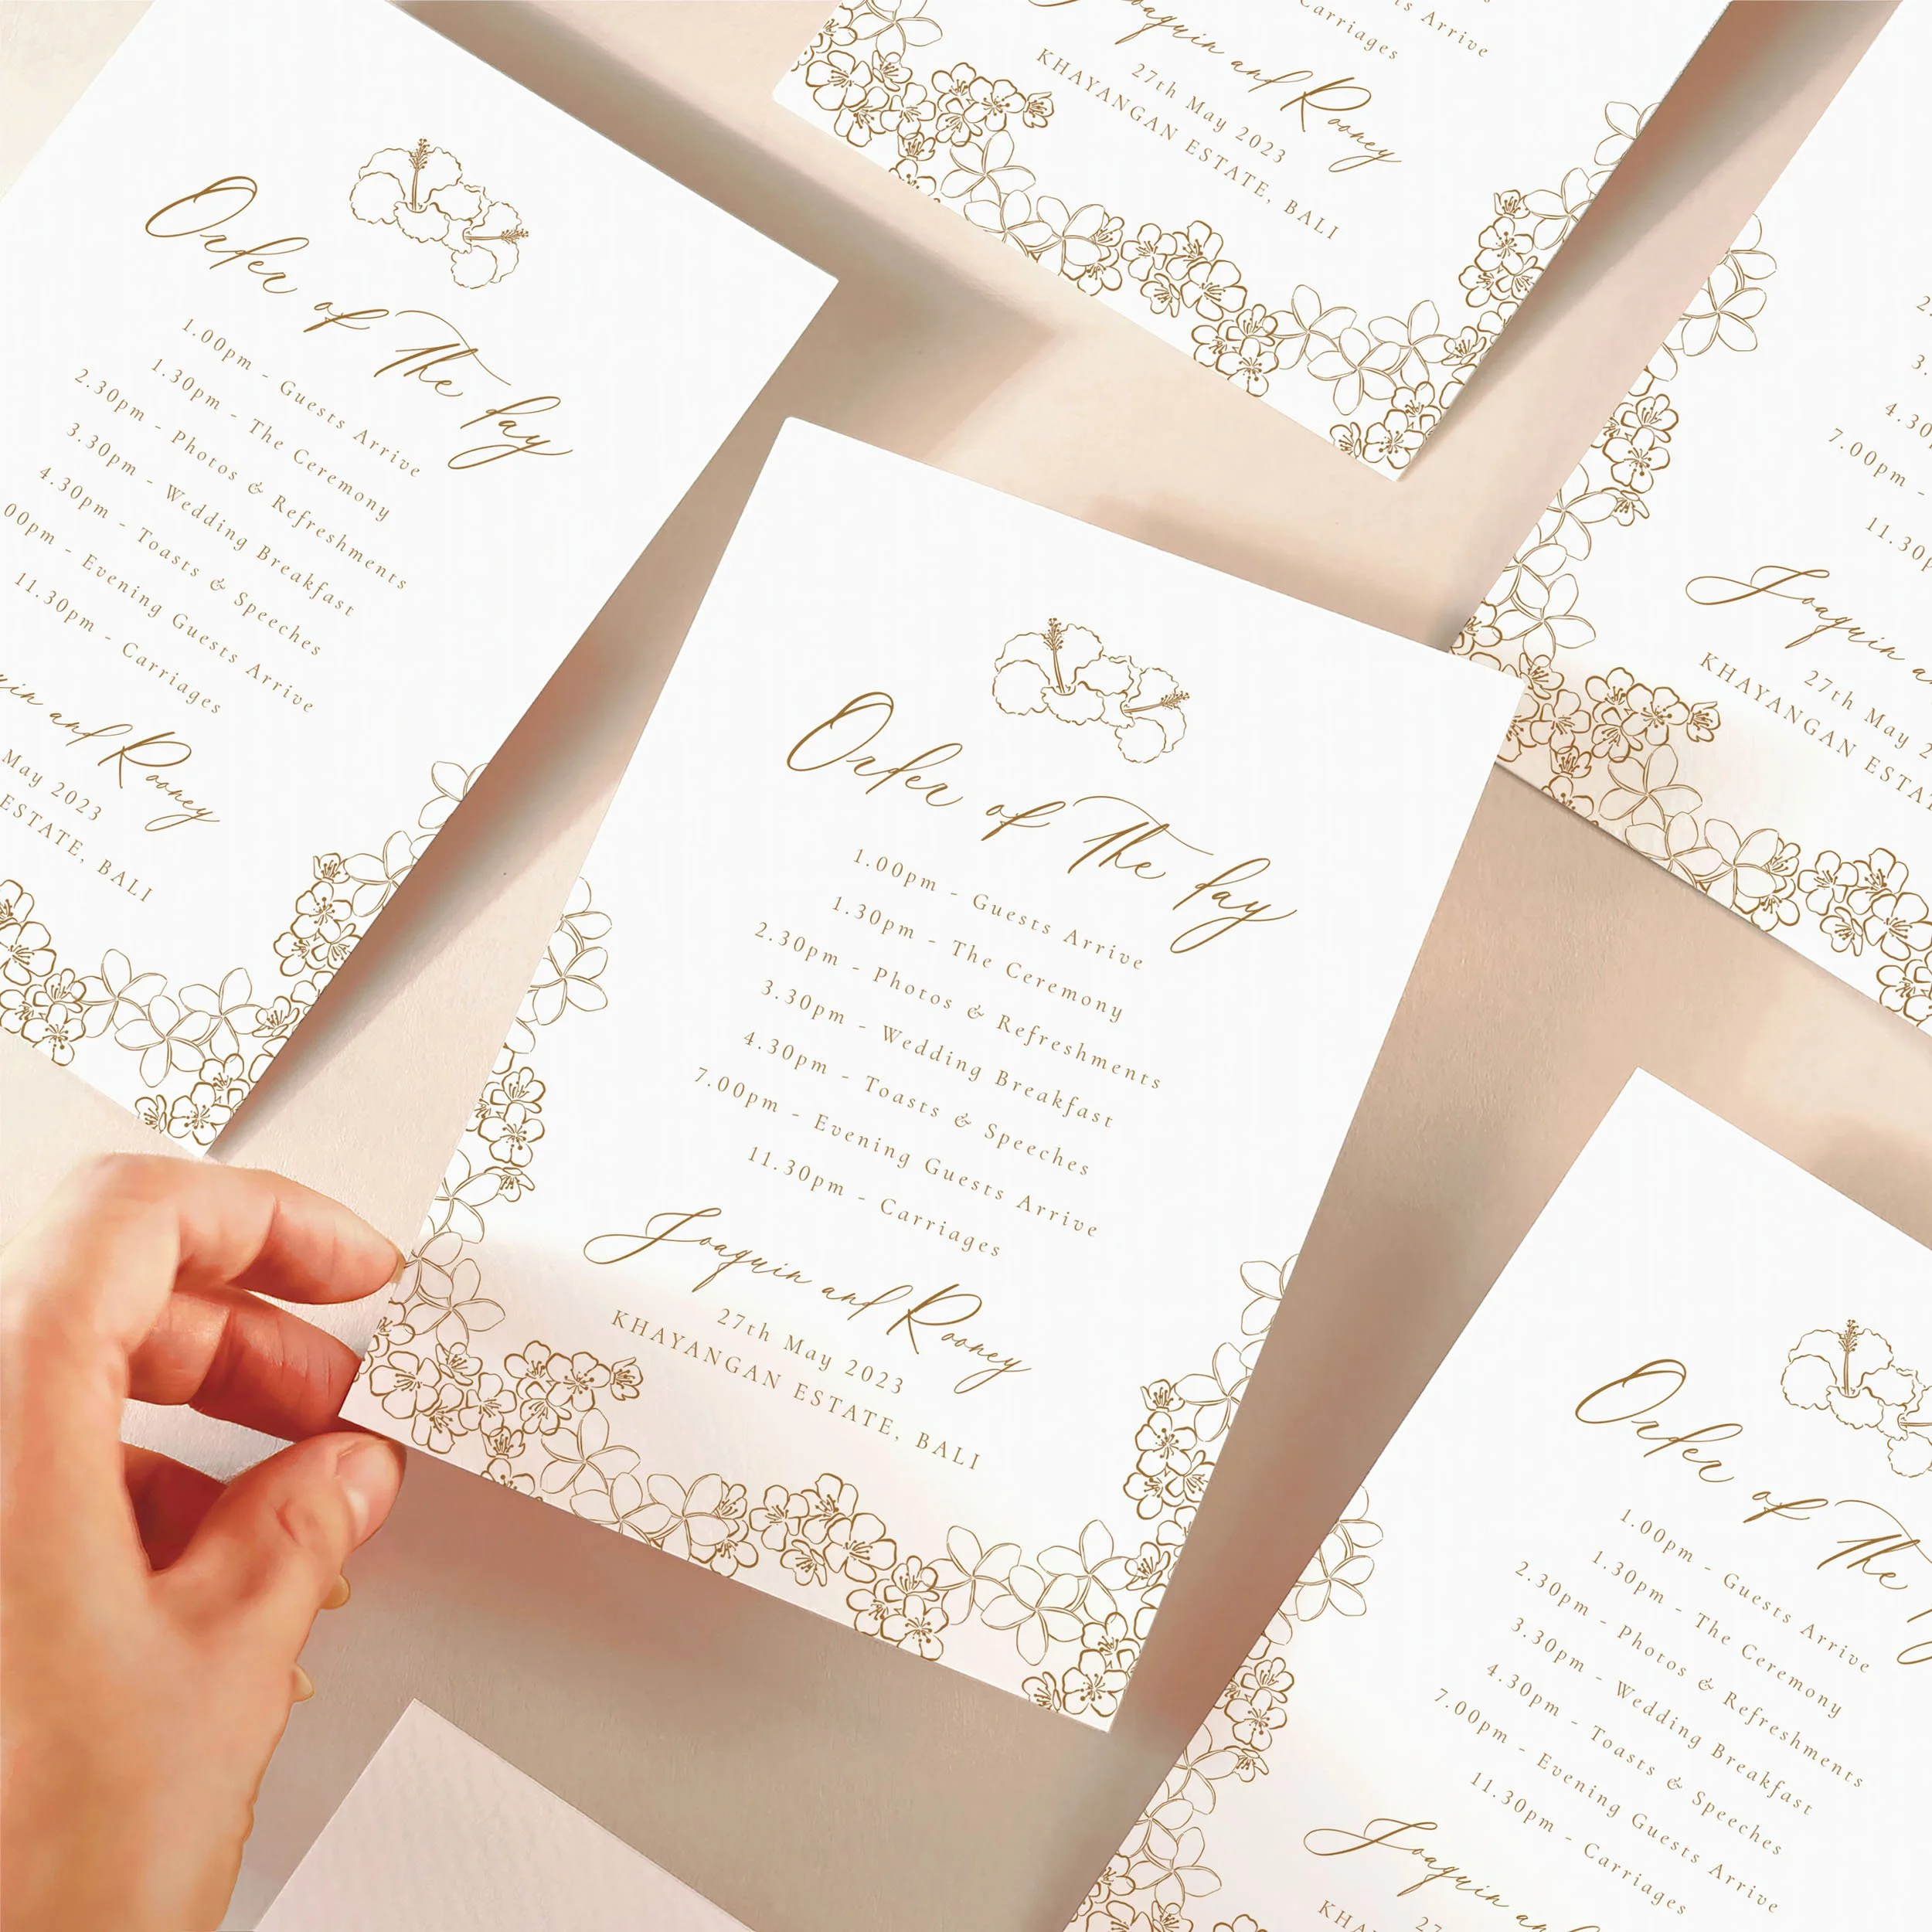 Order of The Day
1.00pm - Guests Arrive
1.30pm - The Ceremony
2.30pm - Photos & Refreshments
3.30pm - Wedding Breakfast
4.30pm - Toasts & Speeches
7.00pm - Evening Guests Arrive
11.30pm - Carriages
Joaquin and Rooney
27th May 2023
KHAYANGAN ESTATE, BALI
Order of The Day
1.00pm - Guests Arrive
1.30pm - The Ceremony
2.30pm - Photos & Refreshments
3.30pm - Wedding Breakfast
4.30pm - Toasts & Speeches
00pm - Evening Guests Arrive
11.30pm - Carriages
and Rooney
May 2023
ESTATE, BALI
Arrive
Carriages
Joaquin and Rooney
27th May 2023
KHAYANGAN ESTATE, BALI
4.30
7.00pm -
11.30
Joaquin
27th May 2
KHAYANGAN ESTA
Order of The
1.00pm - Guests Arrive
1.30pm - The Ceremony
2.30pm - Photos & Refreshments
3.30pm - Wedding Breakfast
4.30pm - Toasts & Speeches
7.00pm - Evening Guests Arrive
11.30pm - Carriages
Joaquin an
27
KHAYAN